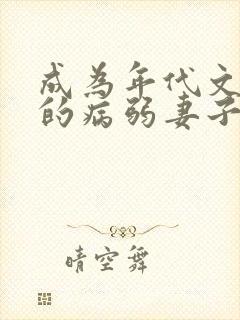 成为年代文
的病弱妻子
晴空舞